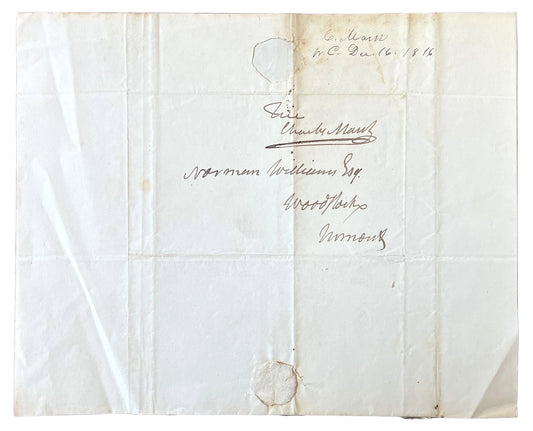 C. Marsh
W. C. Dec. 16. 1816
Free
Charles Marsh
Norman Williams Esq.
Woodstock
Vermont